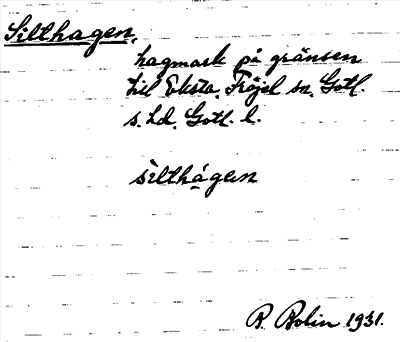 Silthagen,
hagmark på gränsen
till Eksta, Fröjel sn, Gotl.
s. hd, Gotl. l.
sìlthá̱gen
R. Bolin 1931.